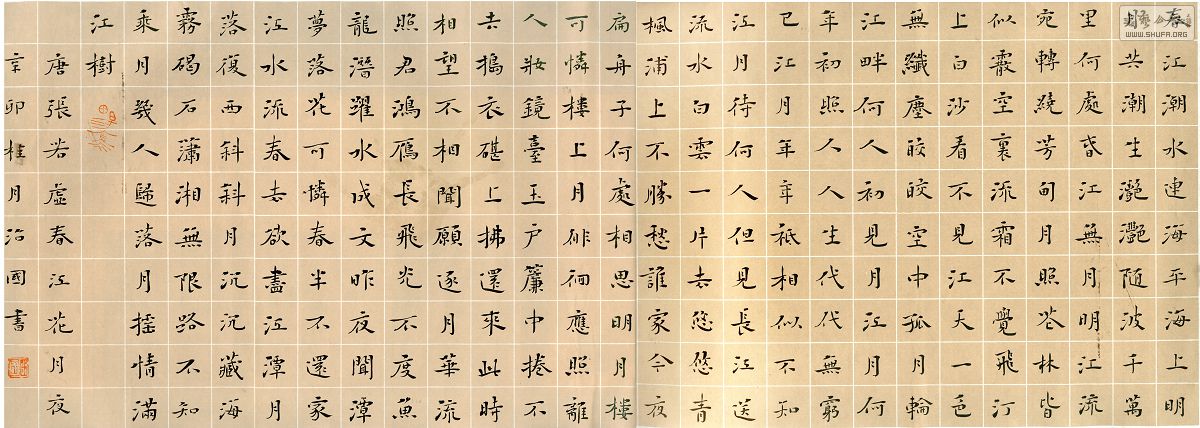 春江潮水連海平海上明
月共潮生灧灧隨波千萬
里何處春江無月明江流
宛轉繞芳甸月照花林皆
似霰空裏流霜不覺飛汀
上白沙看不見江天一色
無纖塵皎皎空中孤月輪
江畔何人初見月江月何
年初照人人生代代無窮
已江月年年祗相似不知
江月待何人但見長江送
流水白雲一片去悠悠青
楓浦上不勝愁誰家今夜
扁舟子何處相思明月樓
可憐樓上月徘徊應照離
人妝鏡臺玉戶簾中捲不
去搗衣碪上拂還來此時
相望不相聞願逐月華流
照君鴻鴈長飛光不度魚
龍潛躍水成文昨夜聞潭
夢落花可憐春半不還家
江水流春去欲盡江潭月
落復西斜斜月沉沉藏海
霧碣石瀟湘無限路不知
乘月幾人歸落月搖情滿
江樹
唐張若虛春江花月夜
辛卯桂月治國書
WWW.SHUFA.ORG